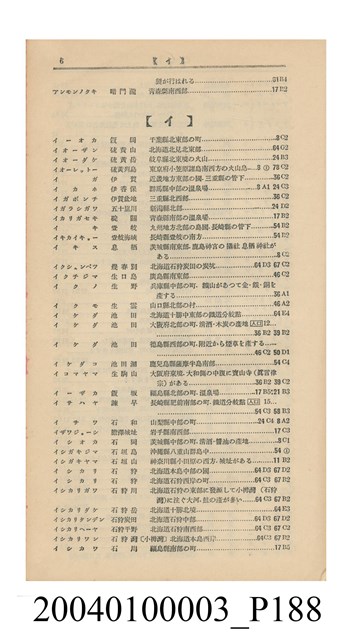 6 【イ】
獄が行はれる 61 B4
アンモンノタキ 暗門瀧 青森縣南西部 17 B2
【イ】
イーオカ 飯岡 千葉縣北東部の町 8 C2
イオーザン 硫黄山 北海道北見北東部 64 C2
イオーダケ 硫黄岳 岐阜縣北東境の火山 24 B3
イオーレットー 硫黄列島 東京府小笠原諸島南西方の火山島
イガ 伊賀 近畿地方東部の國. 三重縣の管下 36 C2
イカホ 伊香保 群馬縣中部の溫泉場 8 A1 24 C3
イガボンチ 伊賀盆地 三重縣北西部 36 C2
イガラシガワ 五十嵐川 新潟縣北部 24 D2
イカリガセキ 碇關 青森縣南部の溫泉場 17 B2
イキ 壹岐 九州地方北部の島國. 長崎縣の管下 54 B2
イキカイキョー 壹岐海峽 長崎縣壹岐の南方 54 B2
イキス 息栖 茨城縣南東部. 鹿島神宮の攝社息栖神社が
ある 8 C2
イクシュンベツ 幾春別 北海道石狩炭田の炭坑 64 D3 67 C2
イクチジマ 生口島 廣島縣南東部 46 B2
イクノ 生野 兵庫縣中部の町. 鑛山があつて金・銀・銅を
産する 36 A1
イクモ 生雲 山口縣北部の村 46 A2
イケダ 池田 北海道十勝中東部の鐵道分岐點 64 B4
イケダ 池田 大阪府北部の町. 清酒・木炭の產地 人口12…
36 B2 39 B2
イケダ 池田 德島縣西部の町. 附近から煙草を產する
46 C2 50 D1
イケダコ 池田湖 鹿兒島縣薩摩半島南部 54 C4
イコマヤマ 生駒山 大阪府東境. 大和側の中腹に寶山寺(眞言律
宗)がある 36 B2 39 C2
イーザカ 飯坂 福島縣北部の町. 溫泉場 17 B5
イサハヤ 諫早 長崎縣肥前南部の町. 鐵道分岐點 人口 15…
54 C3 58 B3
イサワ 石和 山梨縣中部の町 24 C4 8 A2
イサワジョーシ 膽澤城址 岩手縣南西部 17 C3
イシオカ 石岡 茨城縣中部の町. 清酒・醬油の產地 8 C1
イシガキジマ 石垣島 沖繩縣八重山群島中
イシガキヤマ 石垣山 神奈川縣小田原の西方. 城址がある 11 B2
イシカリ 石狩 北海道本島中部の國 64 D3 67 C2
イシカリ 石狩 北海道石狩西岸の町 64 C3 67 C2
イシカリガワ 石狩川 北海道石狩の東部に發源して小樽灣(石狩
灣)に注ぐ大河. 鮭の產が多い 64 C3 67 C2
イシカリダケ 石狩岳 北海道十勝北境
イシカリタンデン 石狩炭田 北海道石狩中部 64 D3 67 C2
イシカリヘーヤ 石狩平野 北海道石狩南西部 64 C3 67 C2
イシカリワン 石狩灣 (小樽灣)北海道本島西岸 64 C3 67 C2
イシカワ 石川 福島縣南部の町 17 B5
20040100003_P188